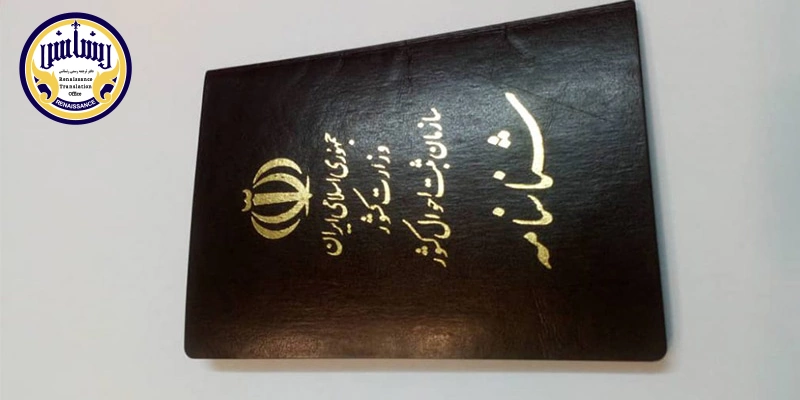 رنسانس
دفتر ترجمه رسمی رنسانس
Renaissance
Translation
Office
RENAISSANCE
جمهوری اسلامی ایران
وزارت کشور
سازمان ثبت احوال کشور
شناسنامه